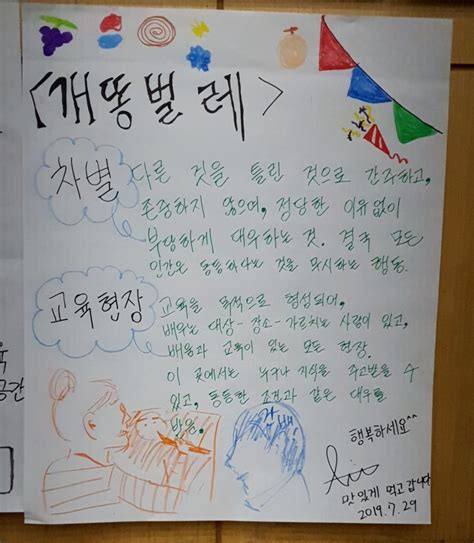 <개똥벌레>
차별
다른 것을 틀린 것으로 간주하고,
존중하지 않으며, 정당한 이유없이
부당하게 대우하는 것. 결국 모든
인간은 동등하다는 것을 무시하는 행동.
교육현장
교육을 목적으로 형성되어,
배우는 대상-장소-가르치는 사람이 있고,
배움과 교육이 있는 모든 현장.
이 곳에서는 누구나 지식을 주고받을 수
있고, 동등한 조건과 같은 대우를
받음.
행복하세요^^
맛있게 먹고 갑니다
2019.7.29
육
공간